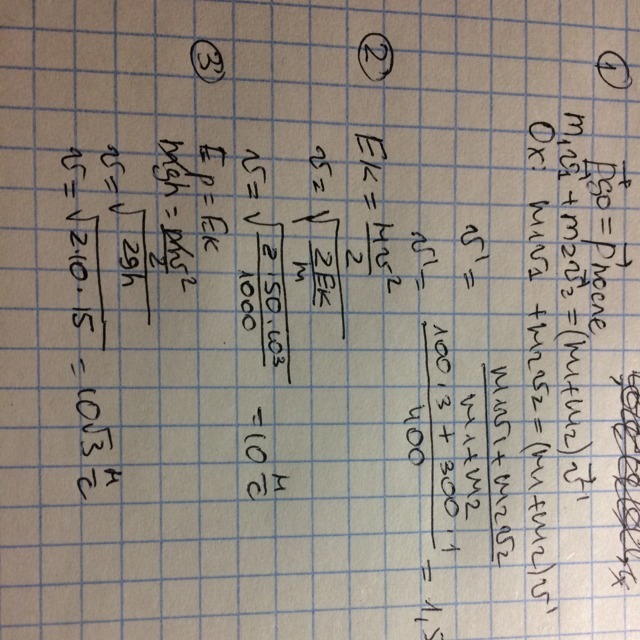 ①
p⃗до = p⃗ после
m₁v⃗₁ + m₂v⃗₂ = (m₁+m₂) v⃗'
Ox: m₁v₁ + m₂v₂ = (m₁+m₂)v'
v' = (m₁v₁ + m₂v₂)/(m₁+m₂)
v' = (100·3 + 300·1)/400 = 1,5
②
Eк = mv²/2
v = √(2Eк/m)
v = √(2·50·10³/1000) = 10 м/с
③
Ep = Eк
mgh = mv²/2
v = √(2gh)
v = √(2·10·15) = 10√3 м/с